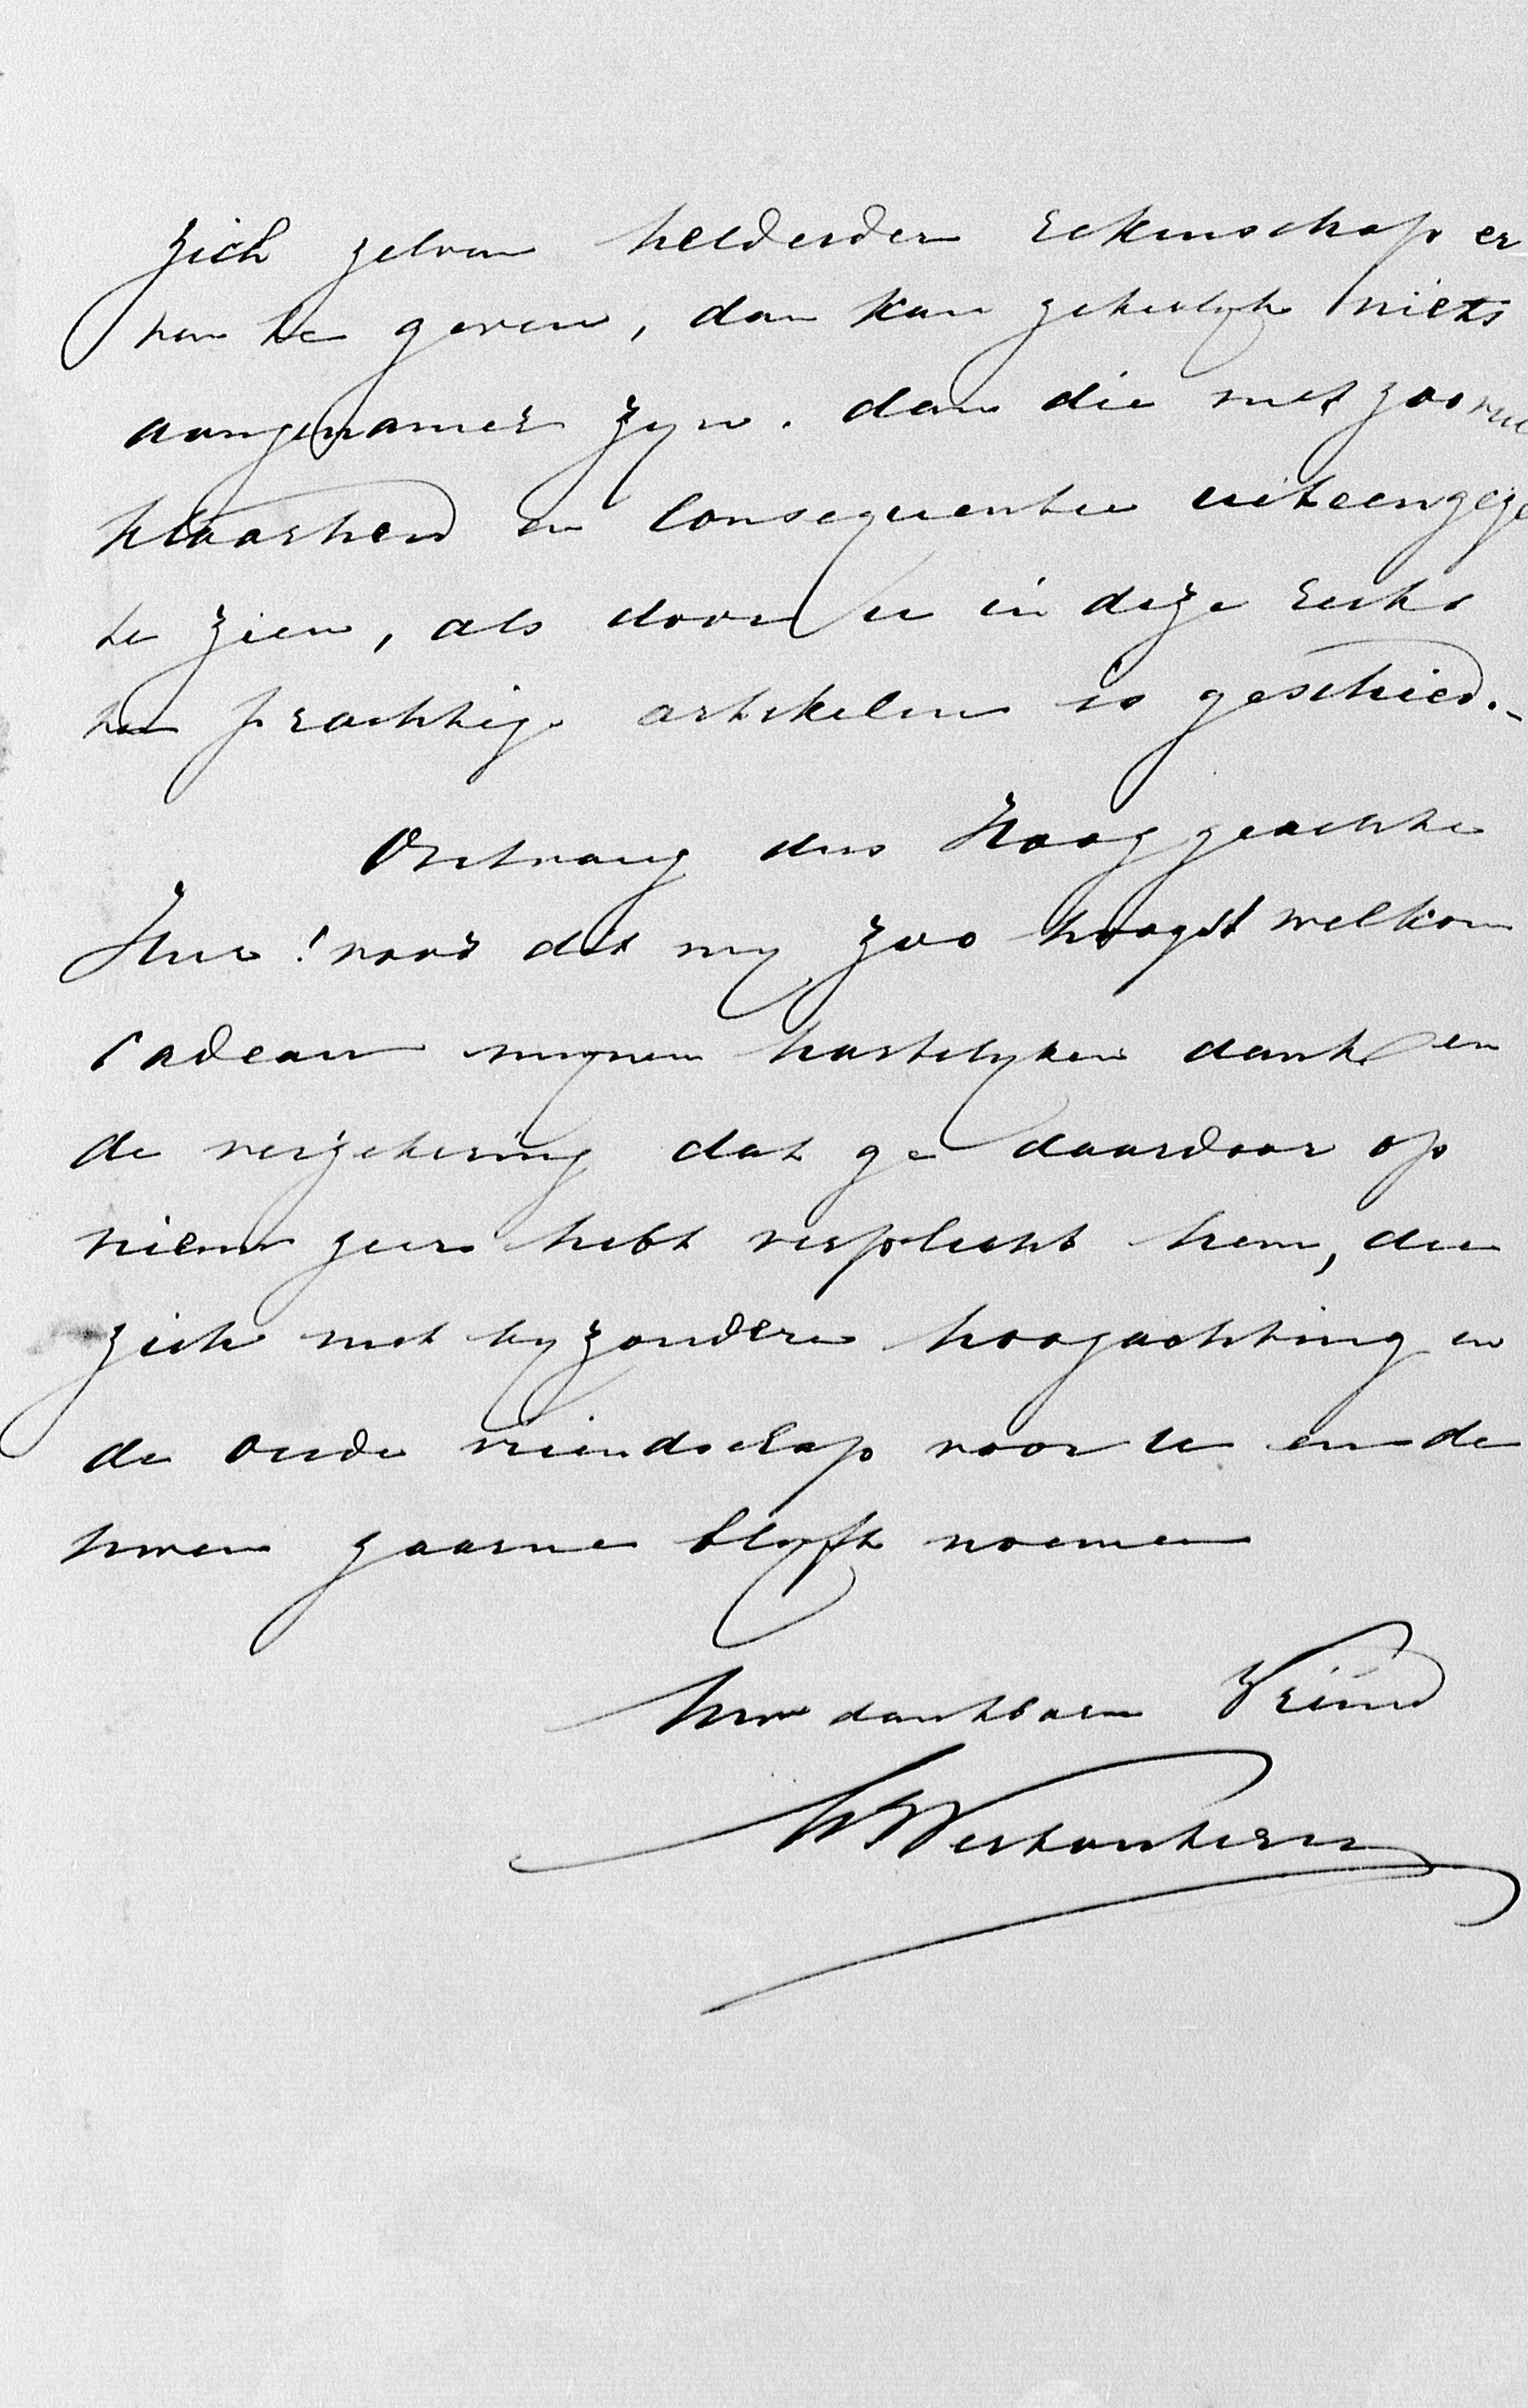 zich zelven helderder rekenschap er
van te geven, dan kan zekerlyk niets
aangenamer zyn. dan die met zoo veel
klaarheid en consequentie uiteengeze
te zien, als door u in deze reeks
van prachtige artikelen is geschied.-
Ontvang dus Hooggeachte
Heer! voor dit my zoo hoogst welkom
cadeau mynen hartelyken dank en
de verzekering dat ge daardoor op
nieuw zeer hebt verplicht hem, die
zich met byzondere hoogachting en
de oude vriendschap voor u en de
uwen gaarne blyft noemen
Uw dankbaren Vriend